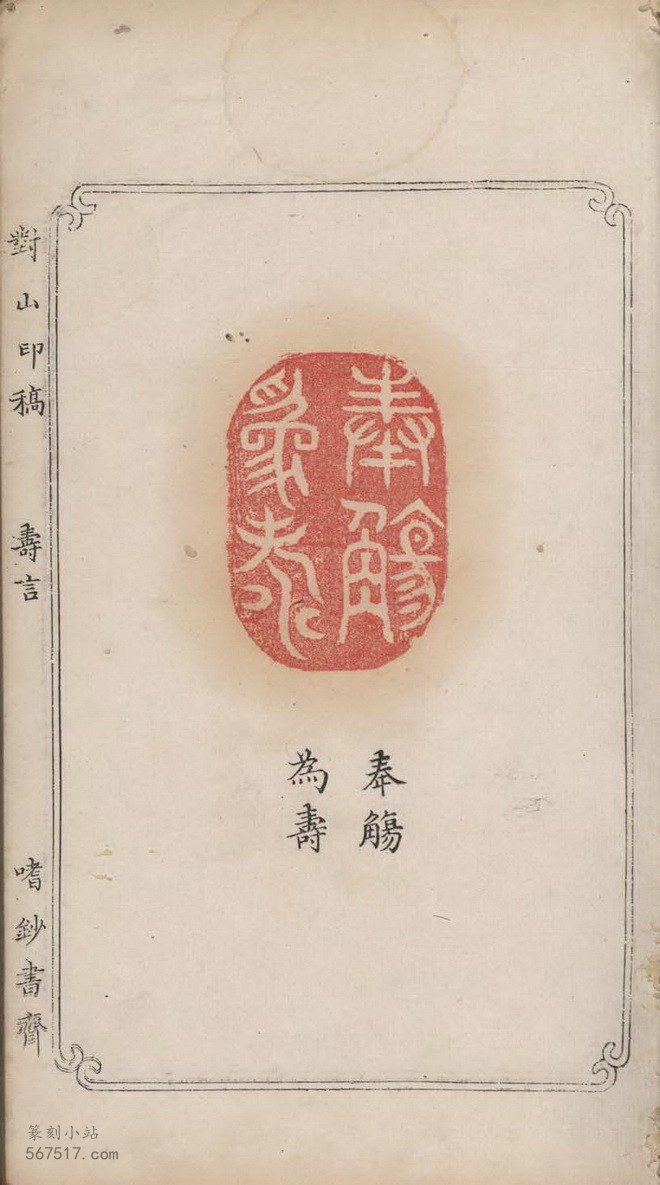 奉觴
為壽
奉觴
為壽
對山印稿 壽言 嗜鈔書齋
篆刻小站
567517.com